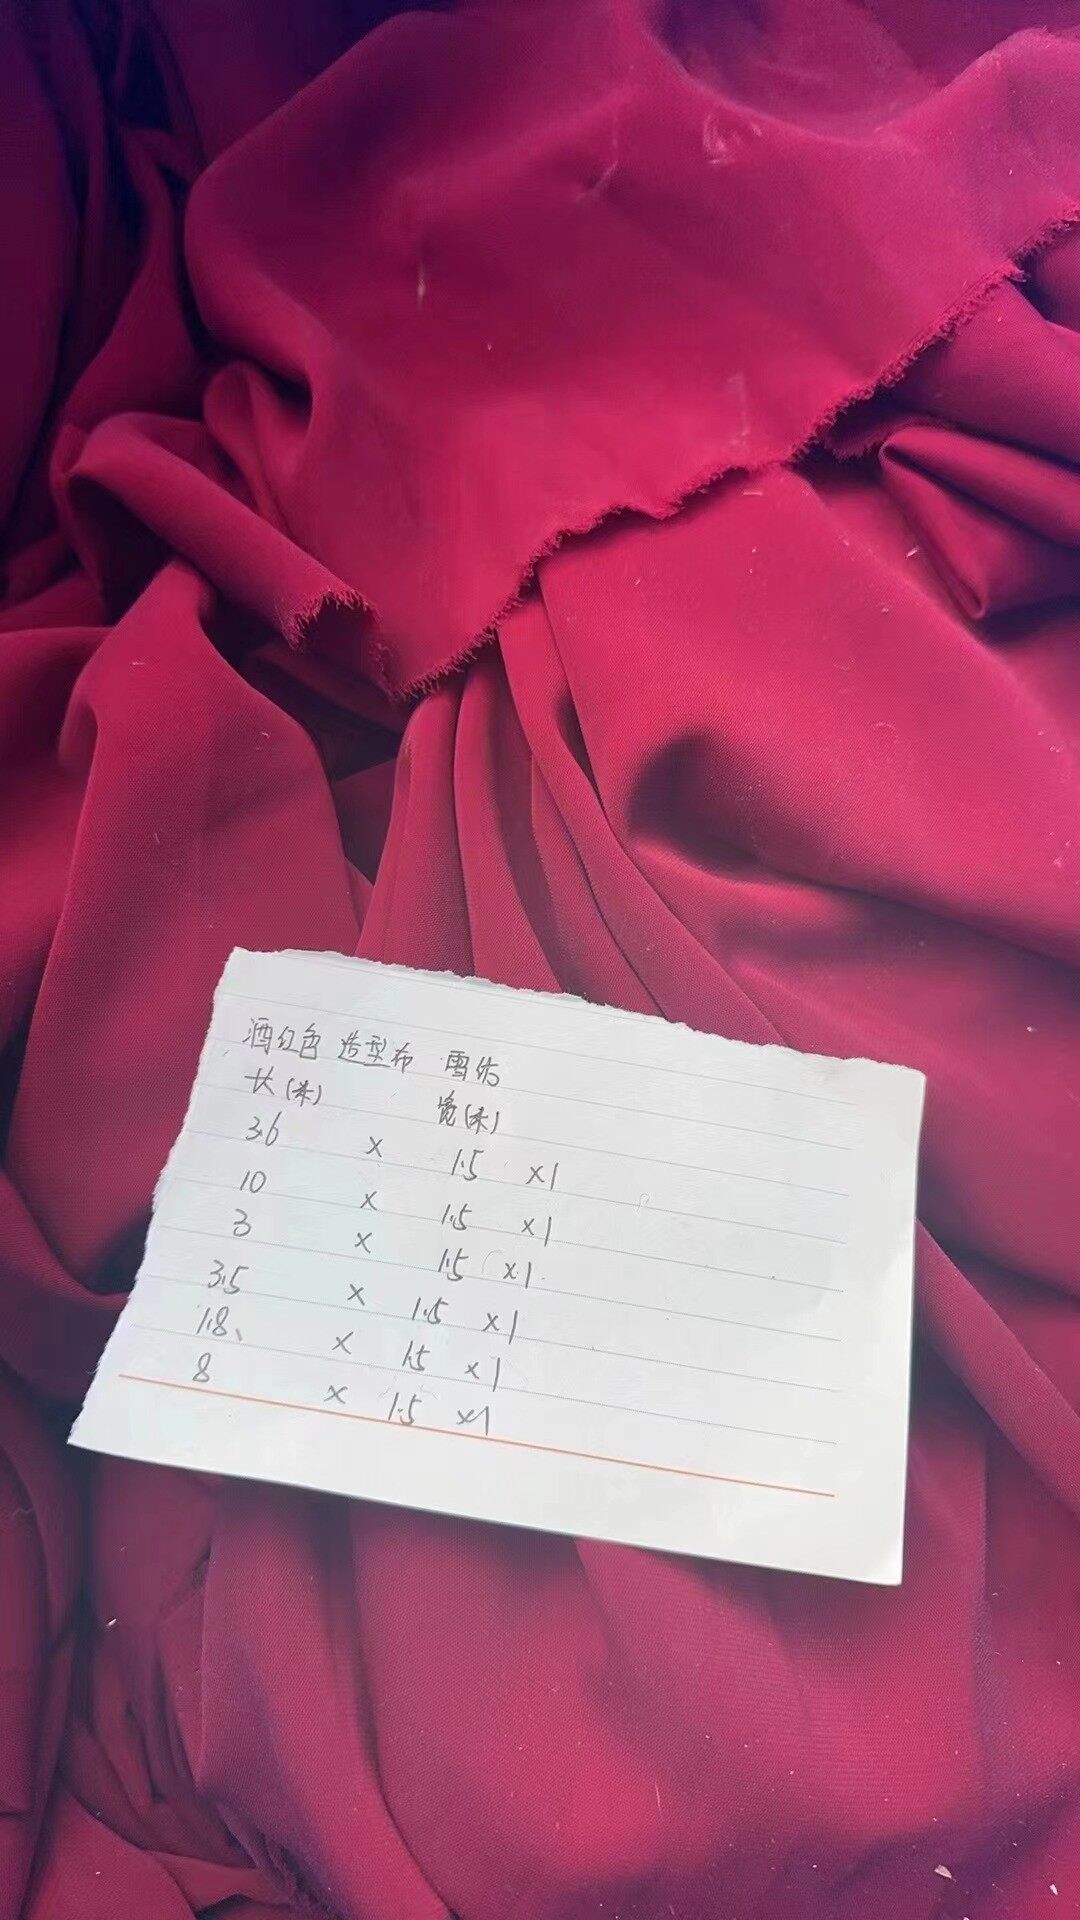 酒红色 造型布 雪纺
长(米) 宽(米)
3.6 × 1.5 ×1
10 × 1.5 ×1
3 × 1.5 ×1.
3.5 × 1.5 ×1
1.8、 × 1.5 ×1
8 × 1.5 ×1